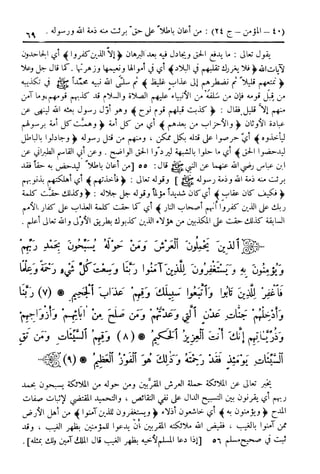 (٤٠ – المؤمن – ج ٢٤) : من أعان باطلاً على حق برئت منه ذمة الله ورسوله . ٦٩
يقول تعالى : ما يدفع الحق ويجادل فيه بعد البرهان ﴿إلا الذين كفروا﴾ أي الجاحدون
بآيات الله ﴿فلا يغررك تقلبهم في البلاد﴾ أي في أموالها ونعيمها وزهرتها . كما قال جل وعلا
﴿نمتعهم قليلاً ثم نضطرهم إلى عذاب غليظ﴾ ثم سلّى الله نبيه محمداً ﷺ في تكذيبه
من قومه فإن من سلفه من الأنبياء عليهم الصلاة والسلام قد كذبهم قومهم وما آمن
منهم إلا قليل فقال : ﴿كذبت قبلهم قوم نوح﴾ وهو أول رسول بعثه الله لينهى عن
عبادة الأوثان ﴿والأحزاب من بعدهم﴾ أي من كل أمة ﴿وهمت كل أمة برسولهم
ليأخذوه﴾ أي حرصوا على قتله بكل ممكن ، ومنهم من قتل رسوله ﴿وجادلوا بالباطل
ليدحضوا به الحق﴾ أي ما حلوا بالشبهة ليردوا الحق الواضح . وعن أبي القاسم الطبراني عن
ابن عباس رضي الله عنهما عن النبي ﷺ قال : ٥٥ [من أعان باطلاً ليدحض به حقاً فقد
برئت منه ذمة الله وذمة رسوله] وقوله تعالى : ﴿فأخذتهم﴾ أي أهلكتهم بذنوبهم
﴿فكيف كان عقاب﴾ أي كان شديداً مؤلماً وقوله جل جلاله : ﴿وكذلك حقت كلمة
ربك على الذين كفروا أنهم أصحاب النار﴾ أي كما حقت كلمة العذاب على كفار الأمم
السابقة كذلك حقت على المكذبين من هؤلاء الذين كذبوك بطريق الأولى والله تعالى أعلم .
﴿الَّذِينَ يَحْمِلُونَ الْعَرْشَ وَمَنْ حَوْلَهُ يُسَبِّحُونَ بِحَمْدِ رَبِّهِمْ
وَيُؤْمِنُونَ بِهِ وَيَسْتَغْفِرُونَ لِلَّذِينَ آمَنُوا رَبَّنَا وَسِعْتَ كُلَّ شَيْءٍ رَّحْمَةً وَعِلْمًا
فَاغْفِرْ لِلَّذِينَ تَابُوا وَاتَّبَعُوا سَبِيلَكَ وَقِهِمْ عَذَابَ الْجَحِيمِ * (٧) رَبَّنَا
وَأَدْخِلْهُمْ جَنَّاتِ عَدْنٍ الَّتِي وَعَدْتَّهُمْ وَمَنْ صَلَحَ مِنْ آبَائِهِمْ وَأَزْوَاجِهِمْ
وَذُرِّيَّاتِهِمْ إِنَّكَ أَنْتَ الْعَزِيزُ الْحَكِيمُ * (٨) وَقِهِمُ السَّيِّئَاتِ وَمَنْ تَقِ
السَّيِّئَاتِ يَوْمَئِذٍ فَقَدْ رَحِمْتَهُ وَذَلِكَ هُوَ الْفَوْزُ الْعَظِيمُ * (٩)﴾
يخبر تعالى عن الملائكة حملة العرش المقربين ومن حوله من الملائكة يسبحون بحمد
ربهم أي يقرنون بين التسبيح الدال على نفي النقائص ، والتحميد المقتضي لإثبات صفات
المدح ﴿ويؤمنون به﴾ أي خاشعون أذلاء ﴿ويستغفرون للذين آمنوا﴾ من أهل الأرض
ممن آمنوا بالغيب ، فقيض الله ملائكته المقربين أن يدعوا للمؤمنين بظهر الغيب ، وقد
ثبت في صحيح مسلم ٥٦ [إذا دعا المسلم لأخيه بظهر الغيب قال الملك آمين ولك بمثله] .